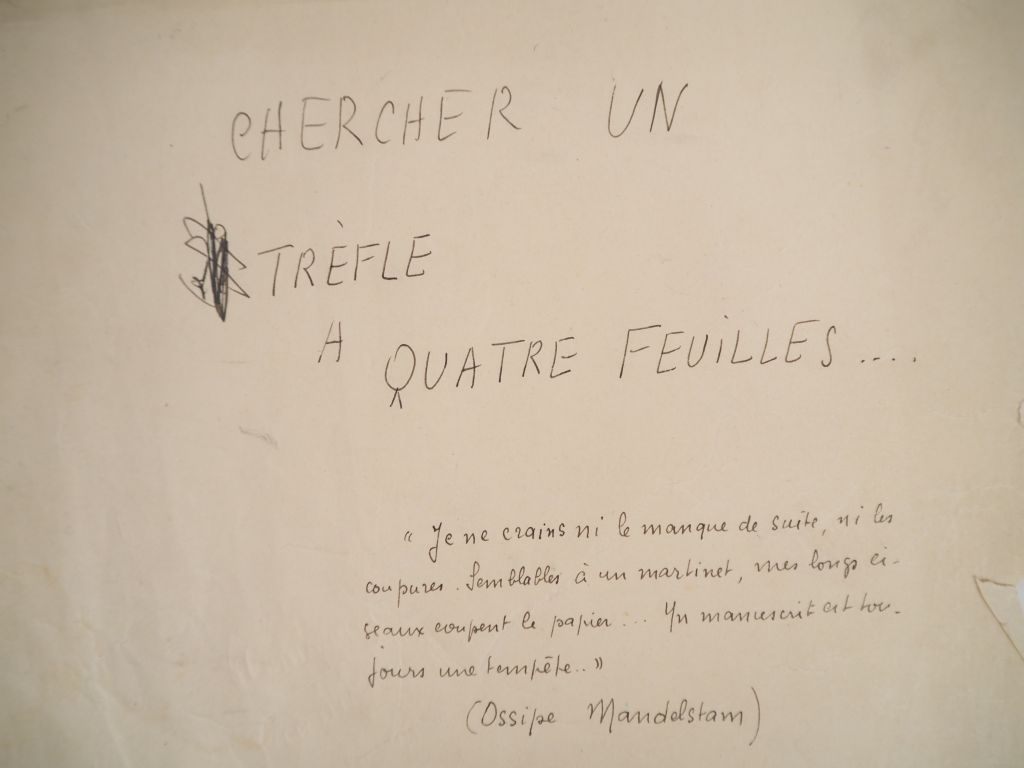 CHERCHER UN
TRÈFLE
A QUATRE FEUILLES ....
« Je ne crains ni le manque de suite, ni les
coupures. Semblables à un martinet, mes longs ci-
seaux coupent le papier ... Un manuscrit est tou-
jours une tempête.. »
(Ossipe Mandelstam)